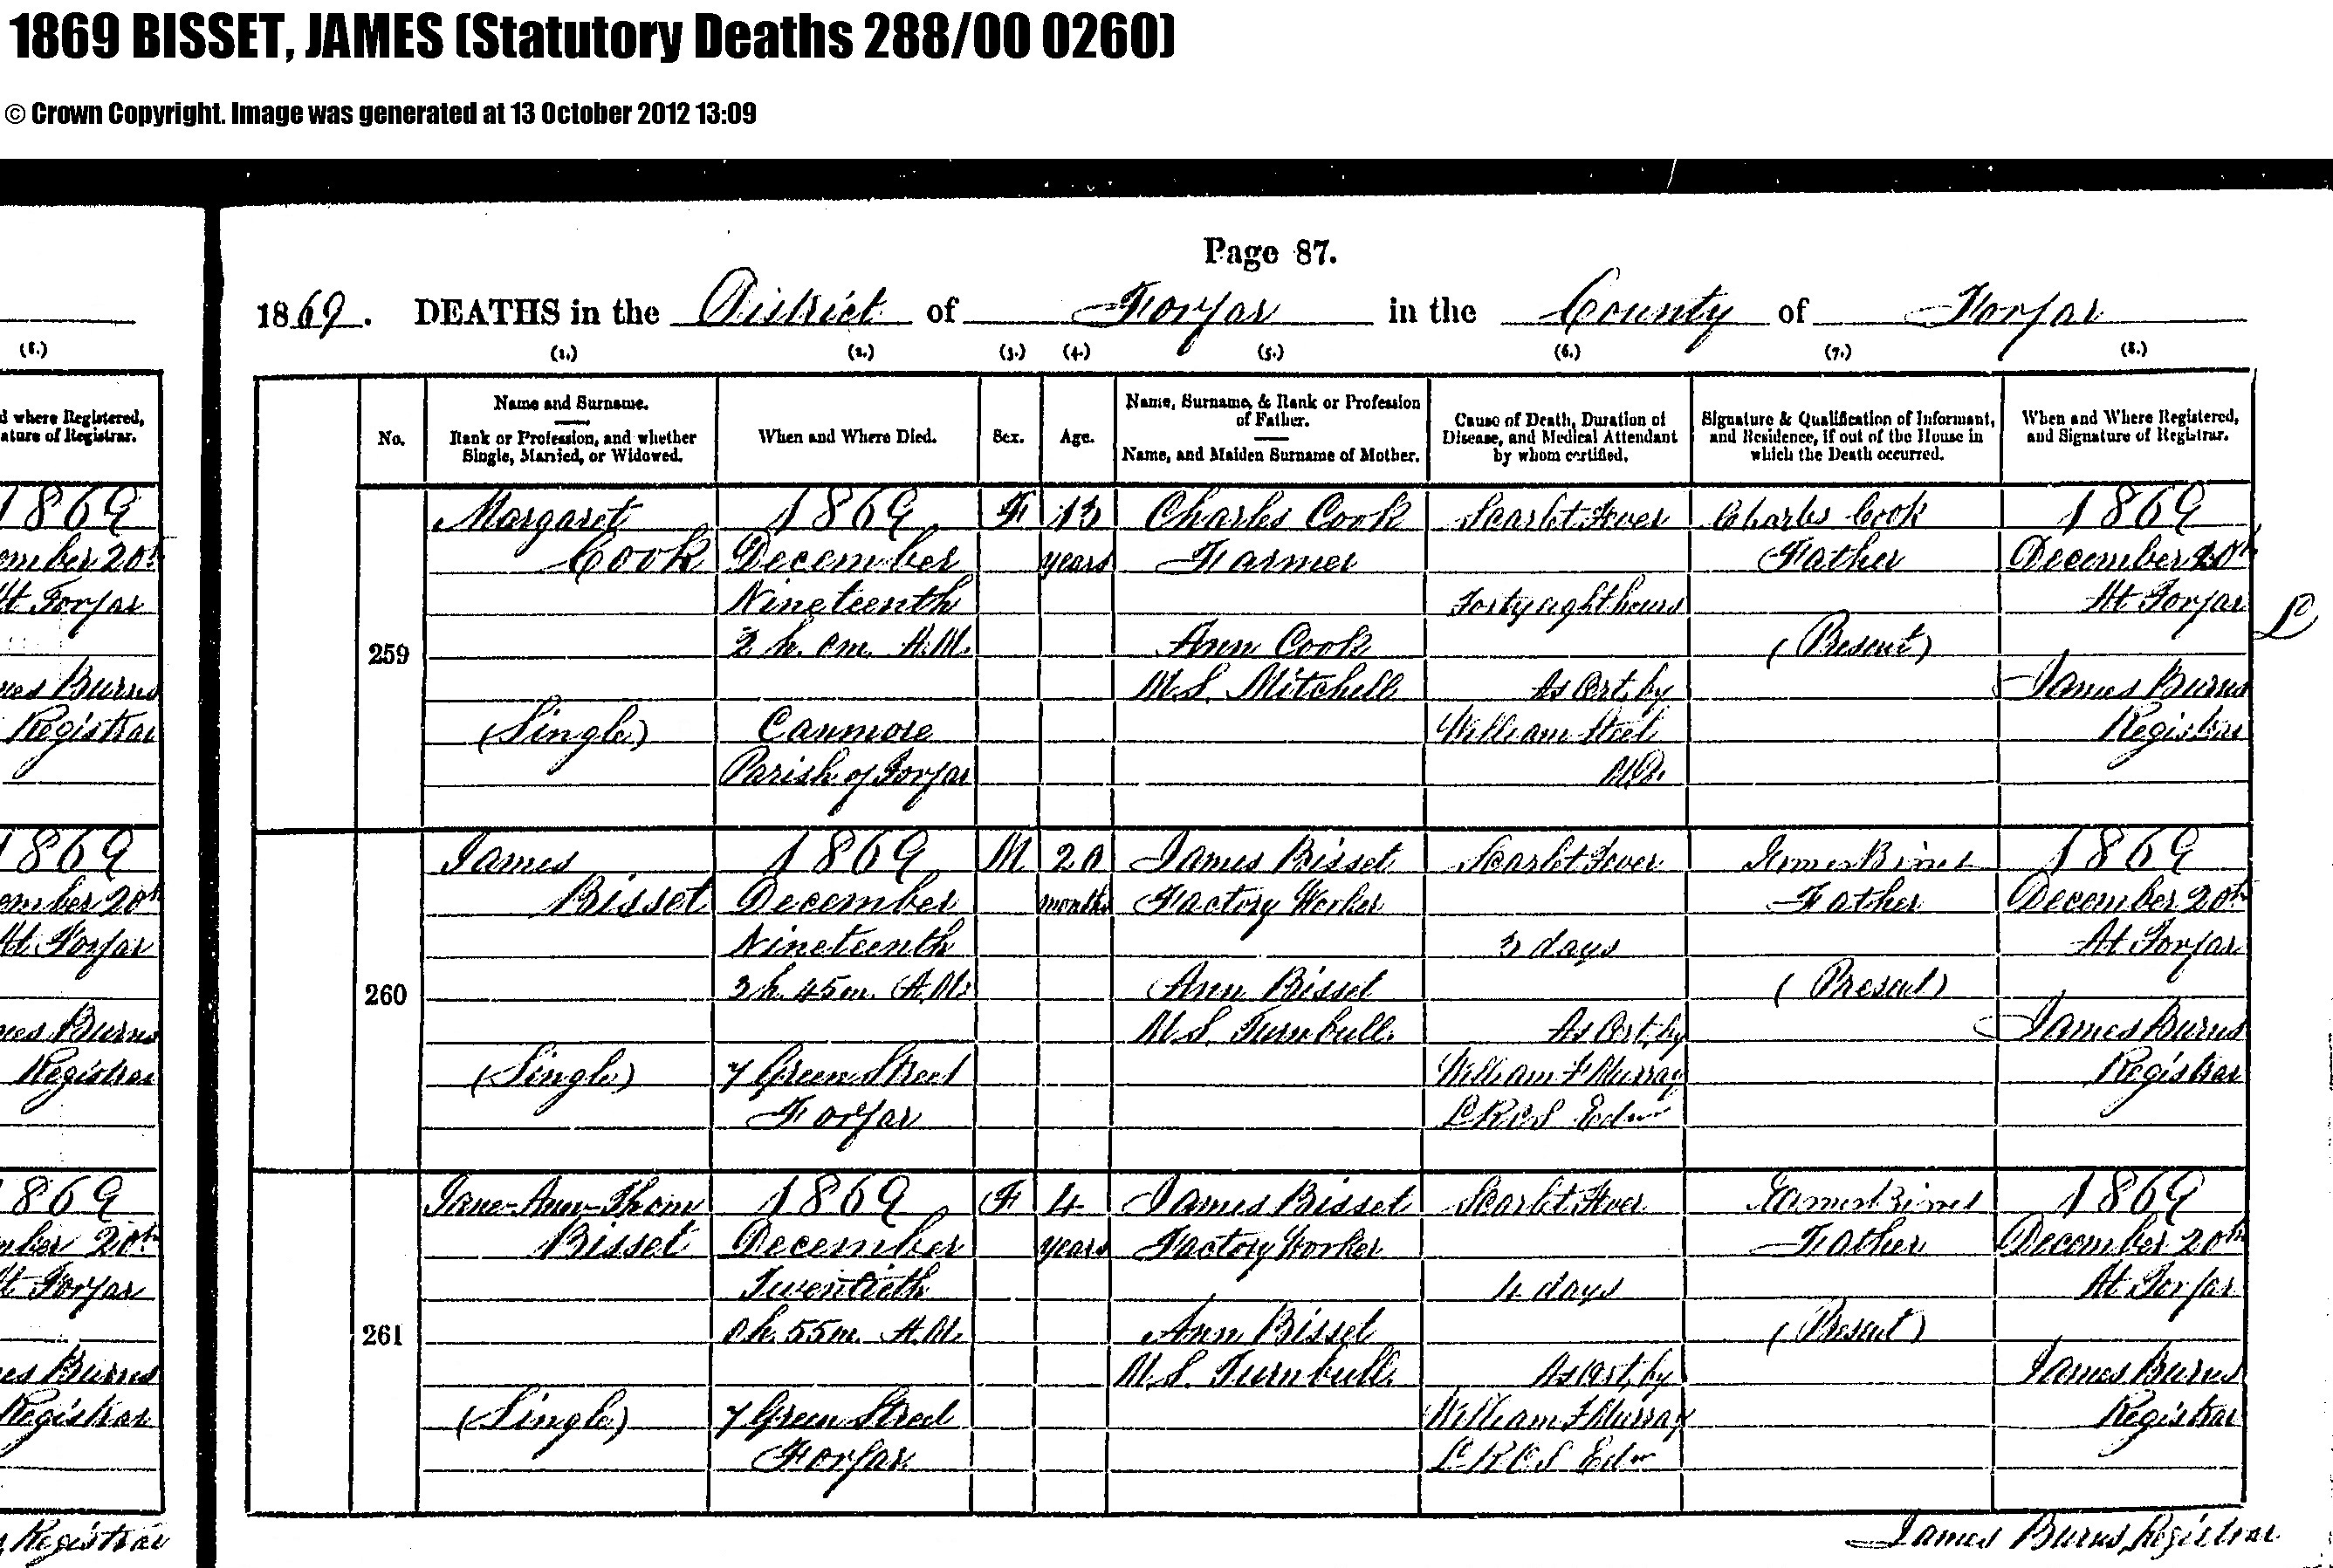 1869 BISSET, JAMES (Statutory Deaths 288/00 0260)
© Crown Copyright. Image was generated at 13 October 2012 13:09
Page 87.
1869. DEATHS in the District of Forfar in the County of Forfar
(1.) (2.) (3.) (4.) (5.) (6.) (7.) (8.)
No.
Name and Surname.
Rank or Profession, and whether
Single, Married, or Widowed.
When and Where Died.
Sex.
Age.
Name, Surname, & Rank or Profession
of Father.
Name, and Maiden Surname of Mother.
Cause of Death, Duration of
Disease, and Medical Attendant
by whom certified.
Signature & Qualification of Informant,
and Residence, if out of the House in
which the Death occurred.
When and Where Registered,
and Signature of Registrar.
259
Margaret
Cook
(Single)
1869
December
Nineteenth
2 h. 0m. A.M.
Canmore
Parish of Forfar
F
13
years
Charles Cook
Farmer
Ann Cook
M.S. Mitchell
Scarlet Fever
Forty eight hours
As Cert. by
William Steel
M.D.
Charles Cook
Father
(Present)
1869
December 20th
At Forfar
James Burns
Registrar
260
James
Bisset
(Single)
1869
December
Nineteenth
3 h. 45m. A.M.
7 Green Street
Forfar
M
20
months
James Bisset
Factory Worker
Ann Bisset
M.S. Turnbull
Scarlet Fever
3 days
As Cert. by
William F Murray
L.R.C.S. Edin
James Bisset
Father
(Present)
1869
December 20th
At Forfar
James Burns
Registrar
261
Jane-Ann-Thom
Bisset
(Single)
1869
December
Twentieth
0h. 55m. A.M.
7 Green Street
Forfar
F
4
years
James Bisset
Factory Worker
Ann Bisset
M.S. Turnbull
Scarlet Fever
4 days
As Cert. by
William F Murray
L.R.C.S. Edin
James Bisset
Father
(Present)
1869
December 20th
At Forfar
James Burns
Registrar
James Burns, Registrar